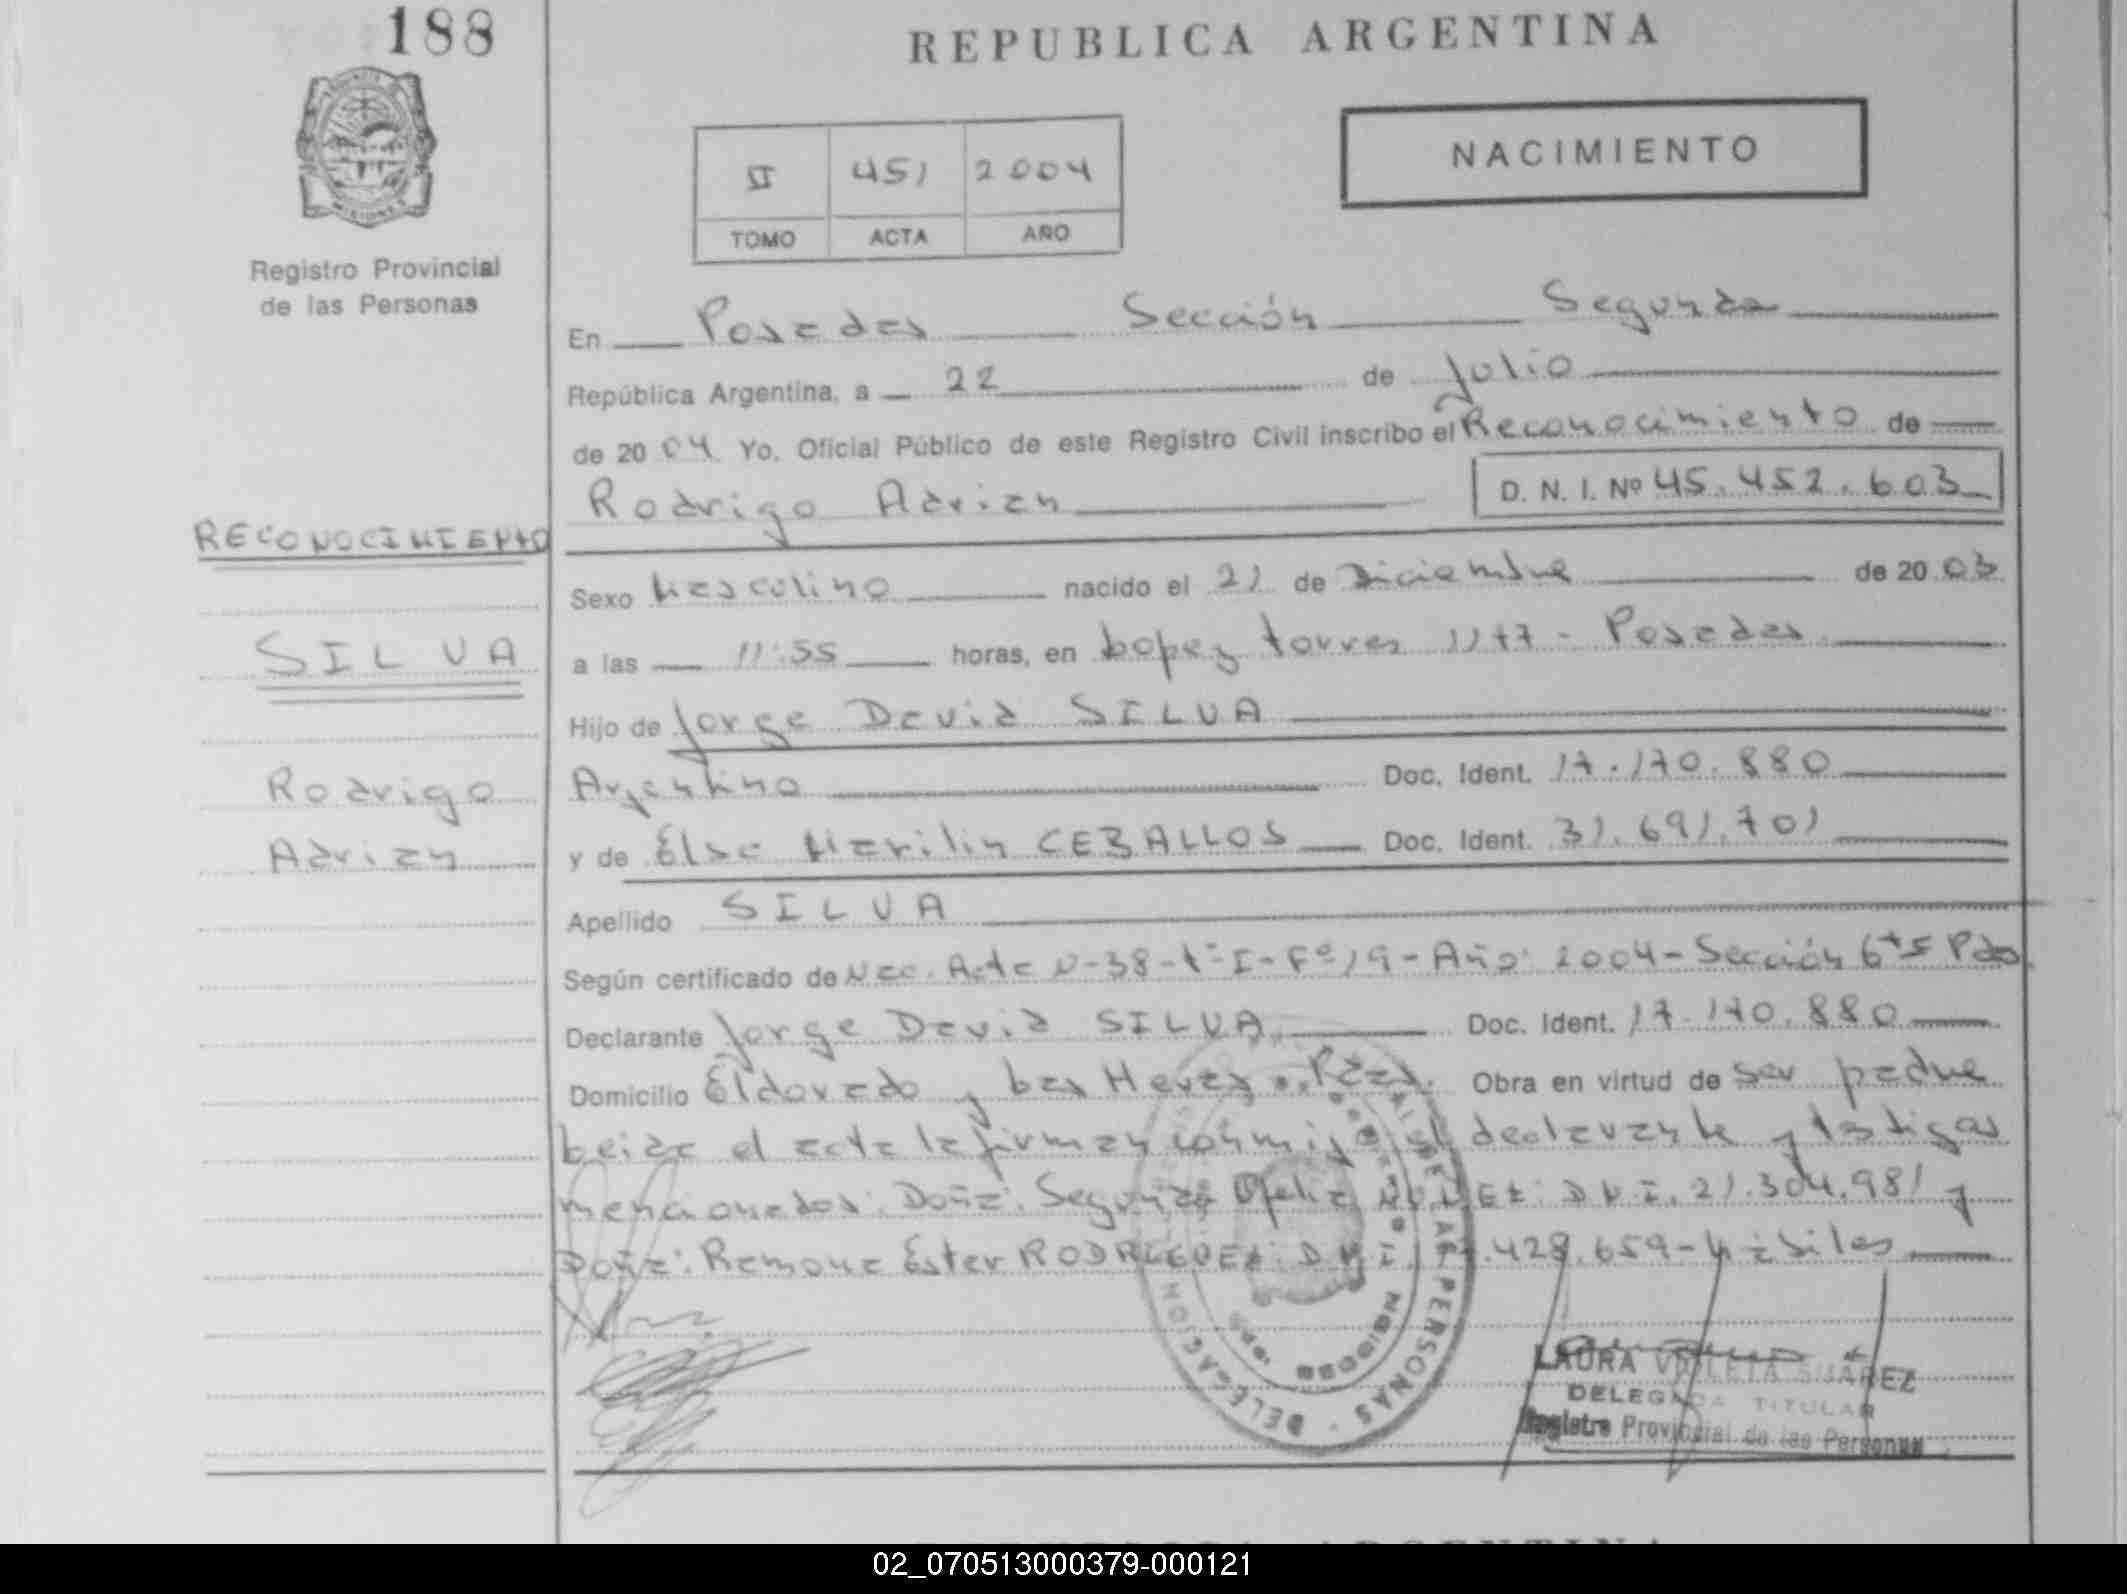 188
REPUBLICA ARGENTINA
NACIMIENTO
II 451 2004
TOMO ACTA AÑO
Registro Provincial
de las Personas
En Posadas Sección Segunda
República Argentina, a 22 de Julio
de 2004 Yo, Oficial Público de este Registro Civil inscribo el Reconocimiento de
Rodrigo Adrian D. N. I. Nº 45.452.603
RECONOCIMIENTO
Sexo Masculino nacido el 21 de Diciembre de 2003
SILVA
a las 11:55 horas, en Lopez torres 1177 - Posadas
Hijo de Jorge David SILVA
Rodrigo
Argentino Doc. Ident. 17.170.880
Adrian
y de Elsa Marilin CEBALLOS Doc. Ident. 31.691.701
Apellido SILVA
Según certificado de Nac. Acta N-38-tº I-Fº 19-Año: 2004-Sección 6ta Pdas
Declarante Jorge David SILVA Doc. Ident. 17.170.880
Domicilio Eldorado y Las Heras Pdas. Obra en virtud de ser padre
Leida el acta la firman conmigo el declarante y testigos
mencionados: Doña: Segunda Ofelia D.N.I. 21.304.981 y
Doña: Ramona Ester RODRIGUEZ: D.N.I. .428.659-hábiles
DELEGACION
PERSONAS
LAURA VIOLETA SUAREZ
DELEGADA TITULAR
Registro Provincial de las Personas
02_070513000379-000121